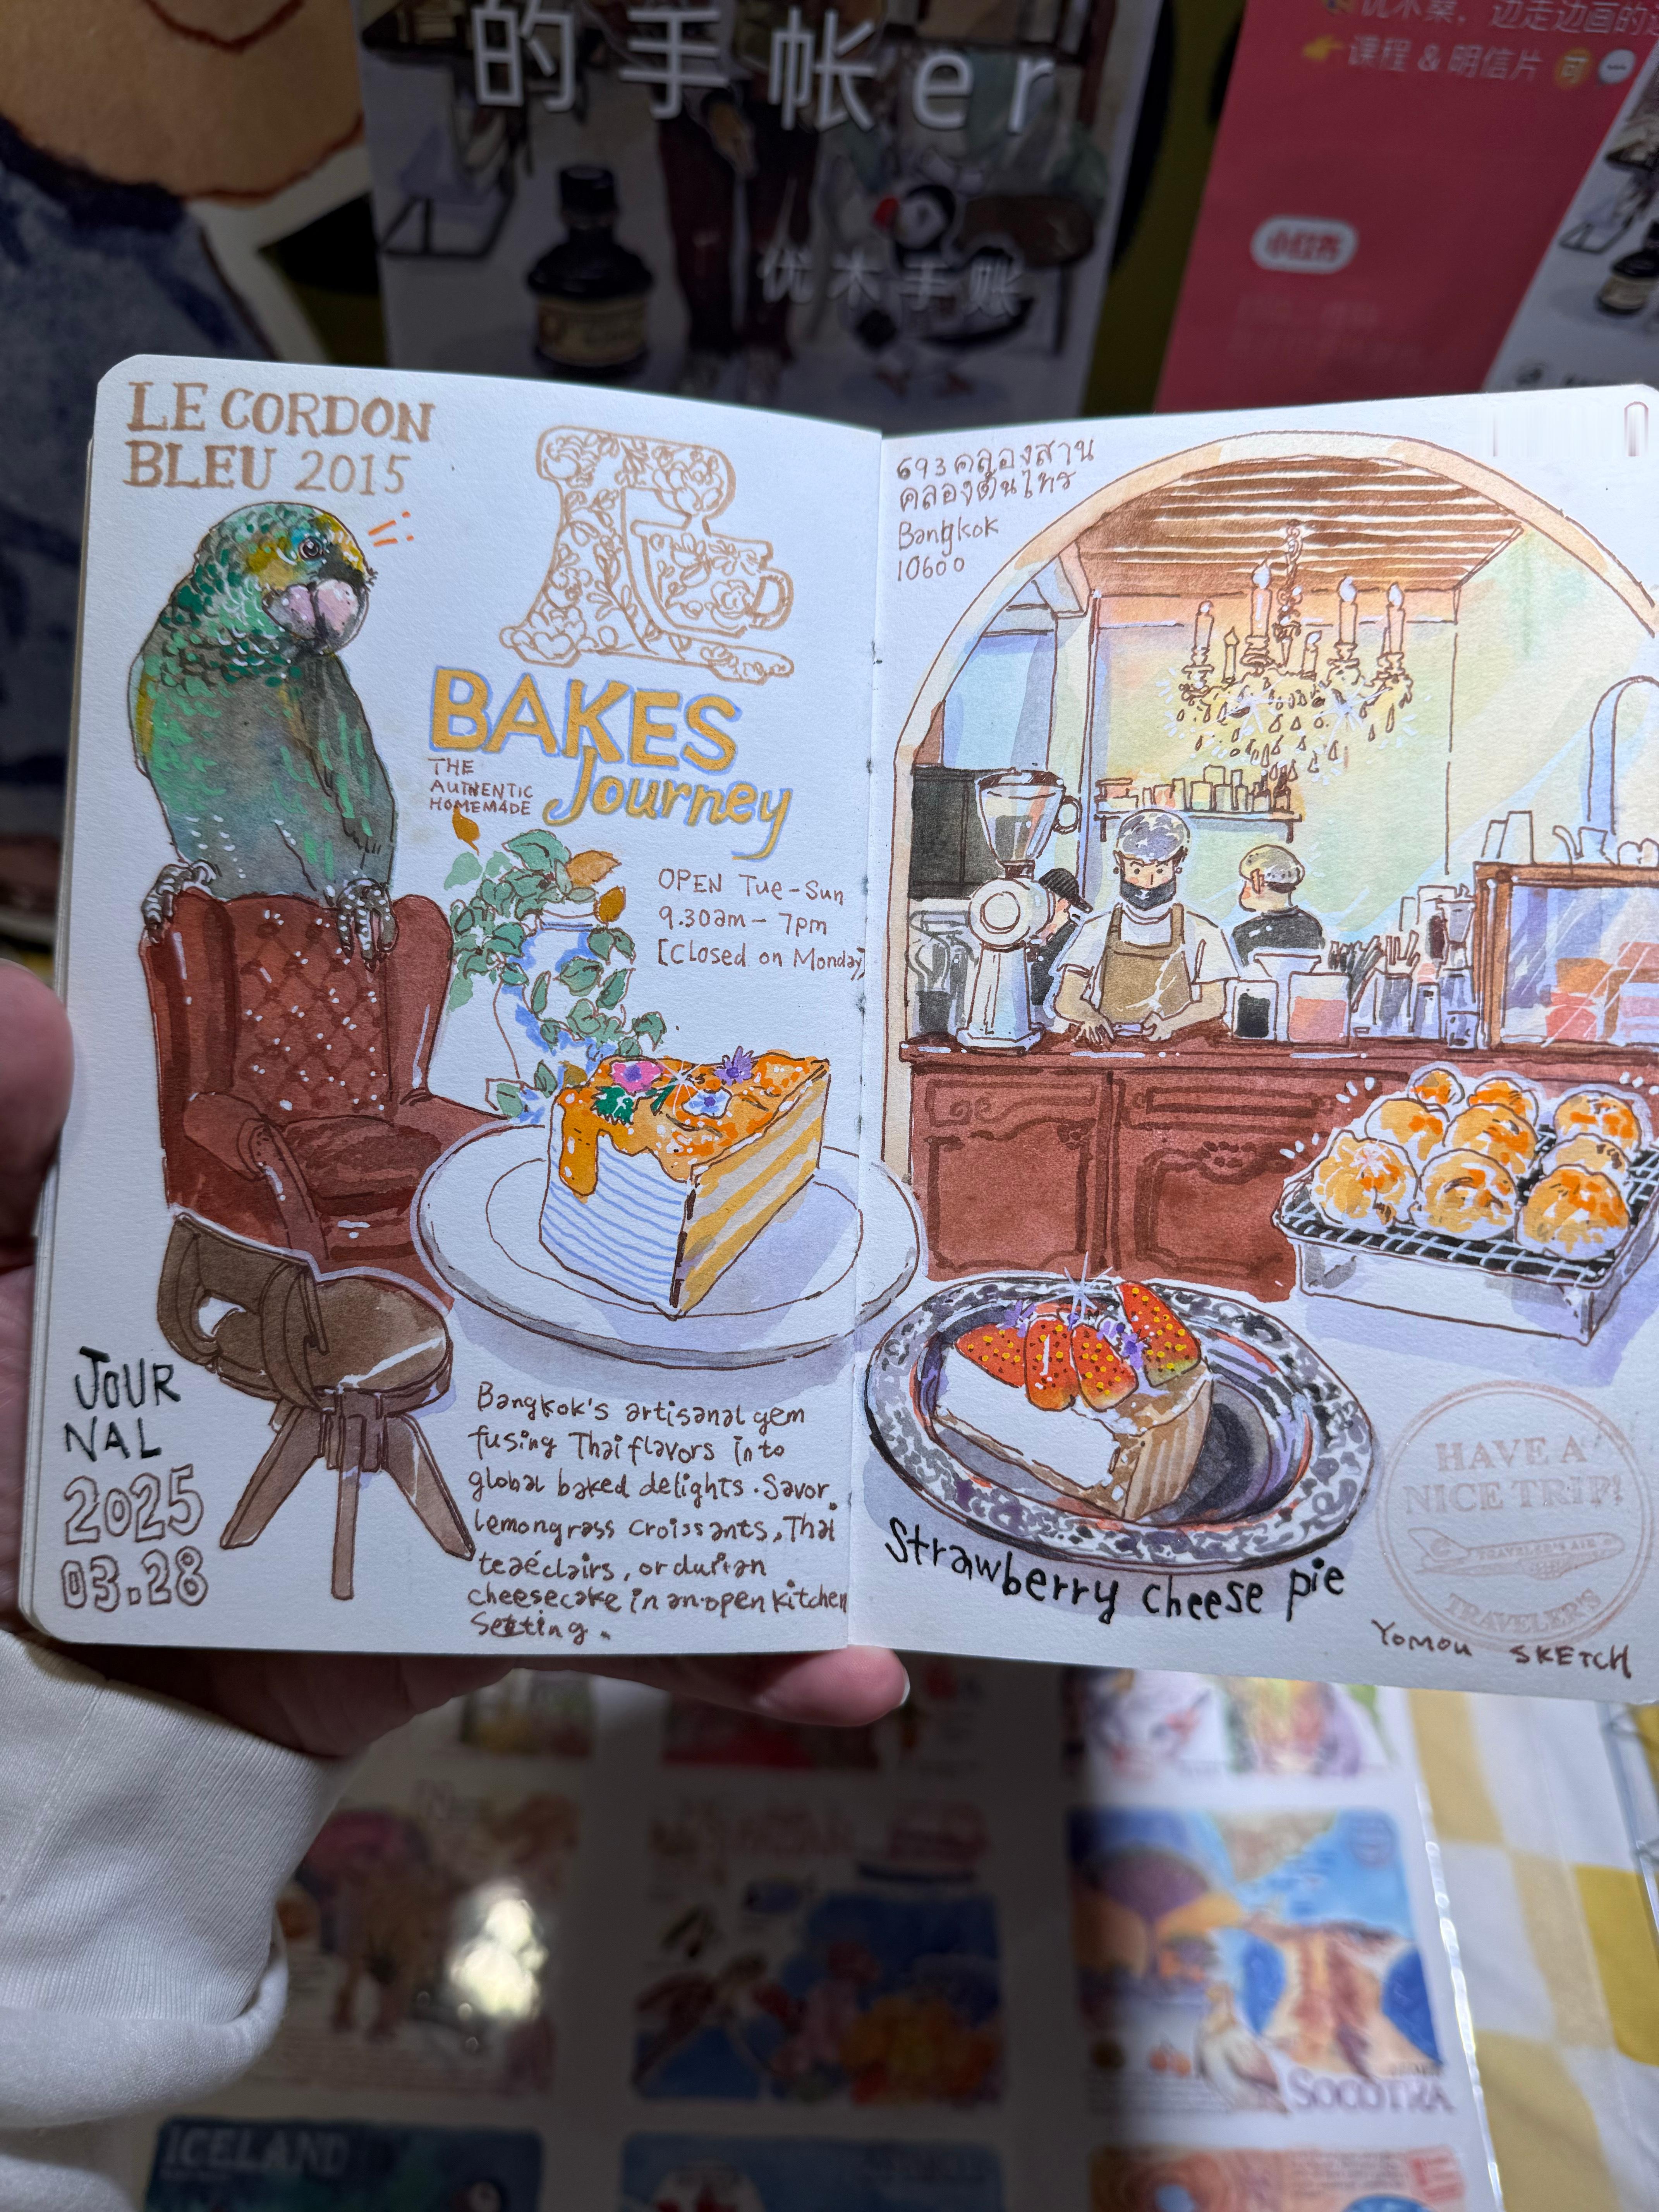 的手帐er
优木手账
边走边画的
课程 & 明信片 可
小红书
LE CORDON
BLEU 2015
BAKES
Journey
THE
AUTHENTIC
HOMEMADE
OPEN Tue-Sun
9.30am - 7pm
[Closed on Monday]
JOUR
NAL
2025
03.28
Bangkok's artisanal gem
fusing Thai flavors into
global baked delights. Savor
lemongrass croissants, Thai
tea éclairs, or durian
cheesecake in an open kitchen
setting.
693 คลองสาน
คลองต้นไทร
Bangkok
10600
Strawberry cheese pie
HAVE A
NICE TRIP!
TRAVELER'S AIR
TRAVELER'S
YOMOU SKETCH
SOCOTRA
ICELAND